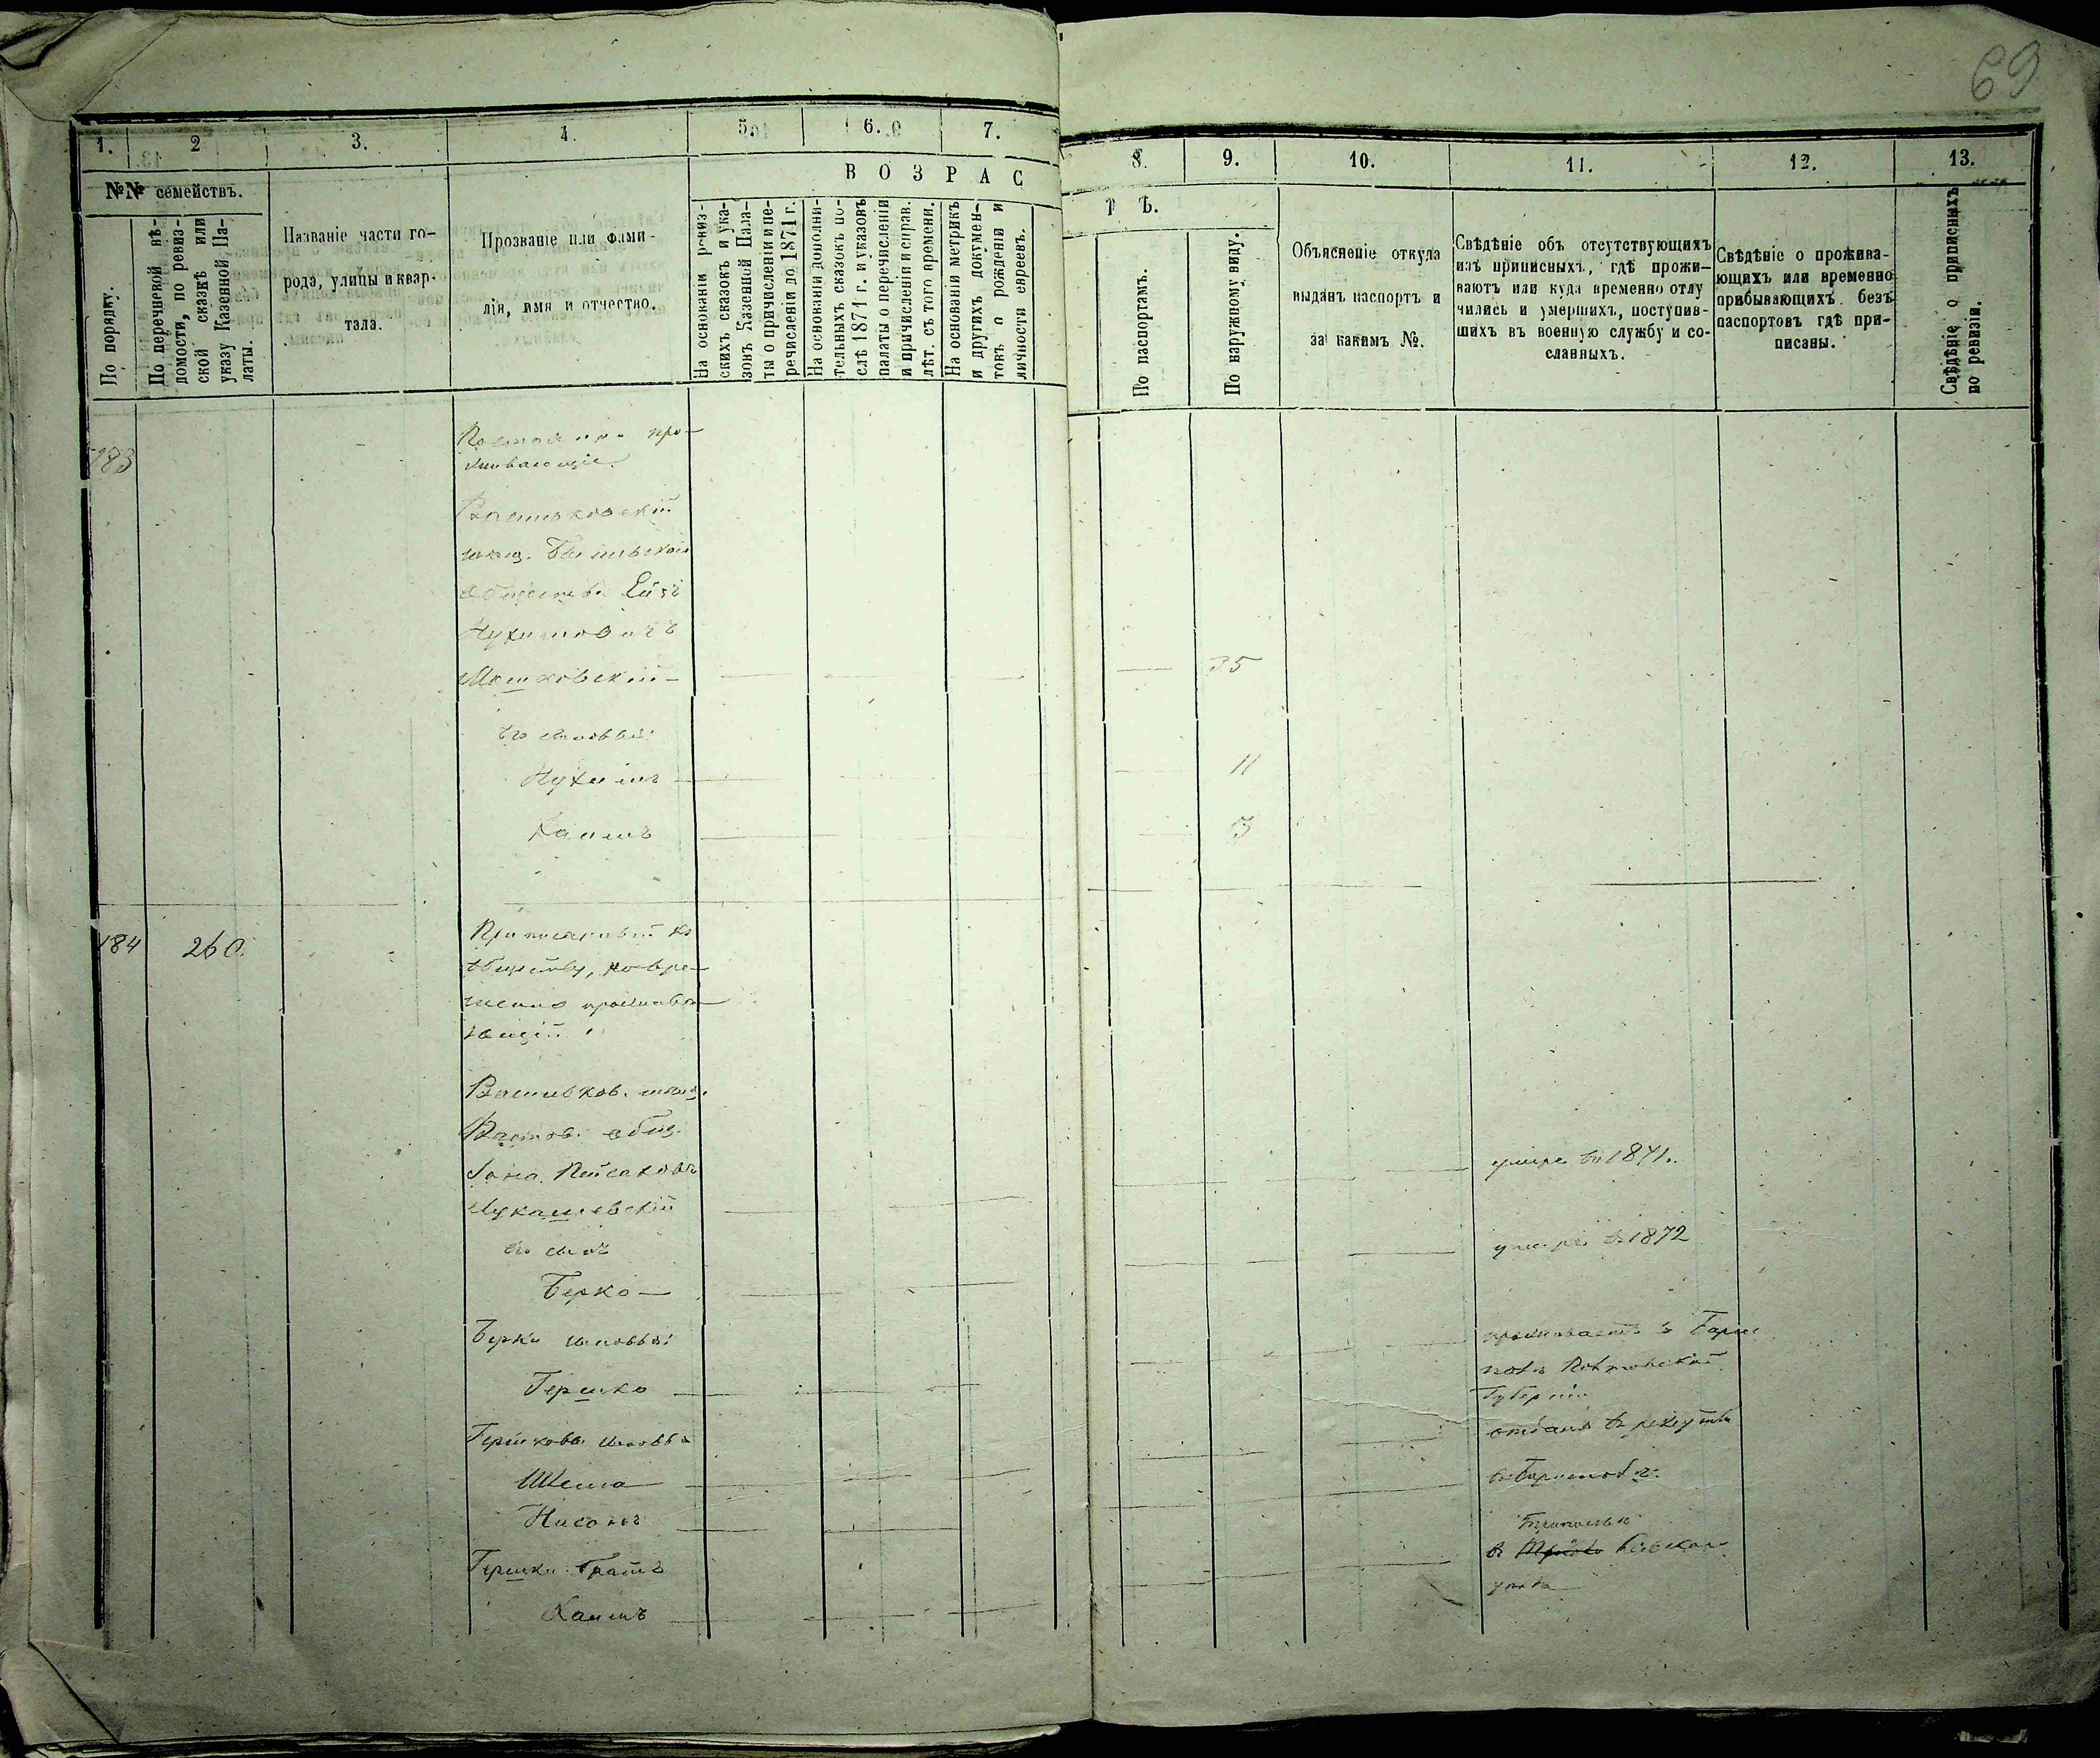 69
1.
2
3.
4.
5.
6.
7.
В О З Р А С
8.
9.
10.
11.
12.
13.
Т Ъ.
№№ семействъ.
По порядку.
По перечневой вѣ-
домости, по ревиз-
ской сказкѣ или
указу Казенной Па-
латы.
Названіе части го-
рода, улицы и квар-
тала.
Прозваніе или фами-
лія, имя и отчество.
На основаніи ревиз-
скихъ сказокъ и ука-
зовъ Казенной Пала-
ты о причисленіи и пе-
речисленіи до 1871 г.
На основаніи дополни-
тельныхъ сказокъ по-
слѣ 1871 г. и указовъ
палаты о перечисленіи
и причисленіи и справ.
лѣт. съ того времени.
На основаніи метрикъ
и другихъ докумен-
товъ о рожденіи и
личности евреевъ.
По паспортамъ.
По наружному виду.
Объясненіе откуда
выданъ паспортъ и
за какимъ №.
Свѣдѣніе объ отсутствующихъ
изъ приписныхъ, гдѣ прожи-
ваютъ или куда временно отлу
чились и умершихъ, поступив-
шихъ въ военную службу и со-
сланныхъ.
Свѣдѣніе о прожива-
ющихъ или временно
прибывающихъ безъ
паспортовъ гдѣ при-
писаны.
Свѣдѣніе о приписныхъ
по ревизіи.
183
про-
живающіе.
Васильковскій
мѣщ.
общества
Нухимовичъ
Мошковскій
35
его сыновья:
Нухимъ
11
Хаимъ
3
184
260.
Приписанный къ
обществу, но вре-
менно прожива-
ющій
Васильков. мѣщ.
общ.
Пейсаховъ
Лукашевскій
умеръ въ 1871.
его сынъ
Берко
умеръ въ 1872
Берки сыновья:
Гершко
проживаетъ въ
Губерніи
Гершковы сыновья
Шлема
отданъ въ рекруты
Нисонъ
Гершки братъ
Хаимъ
въ
уѣзда